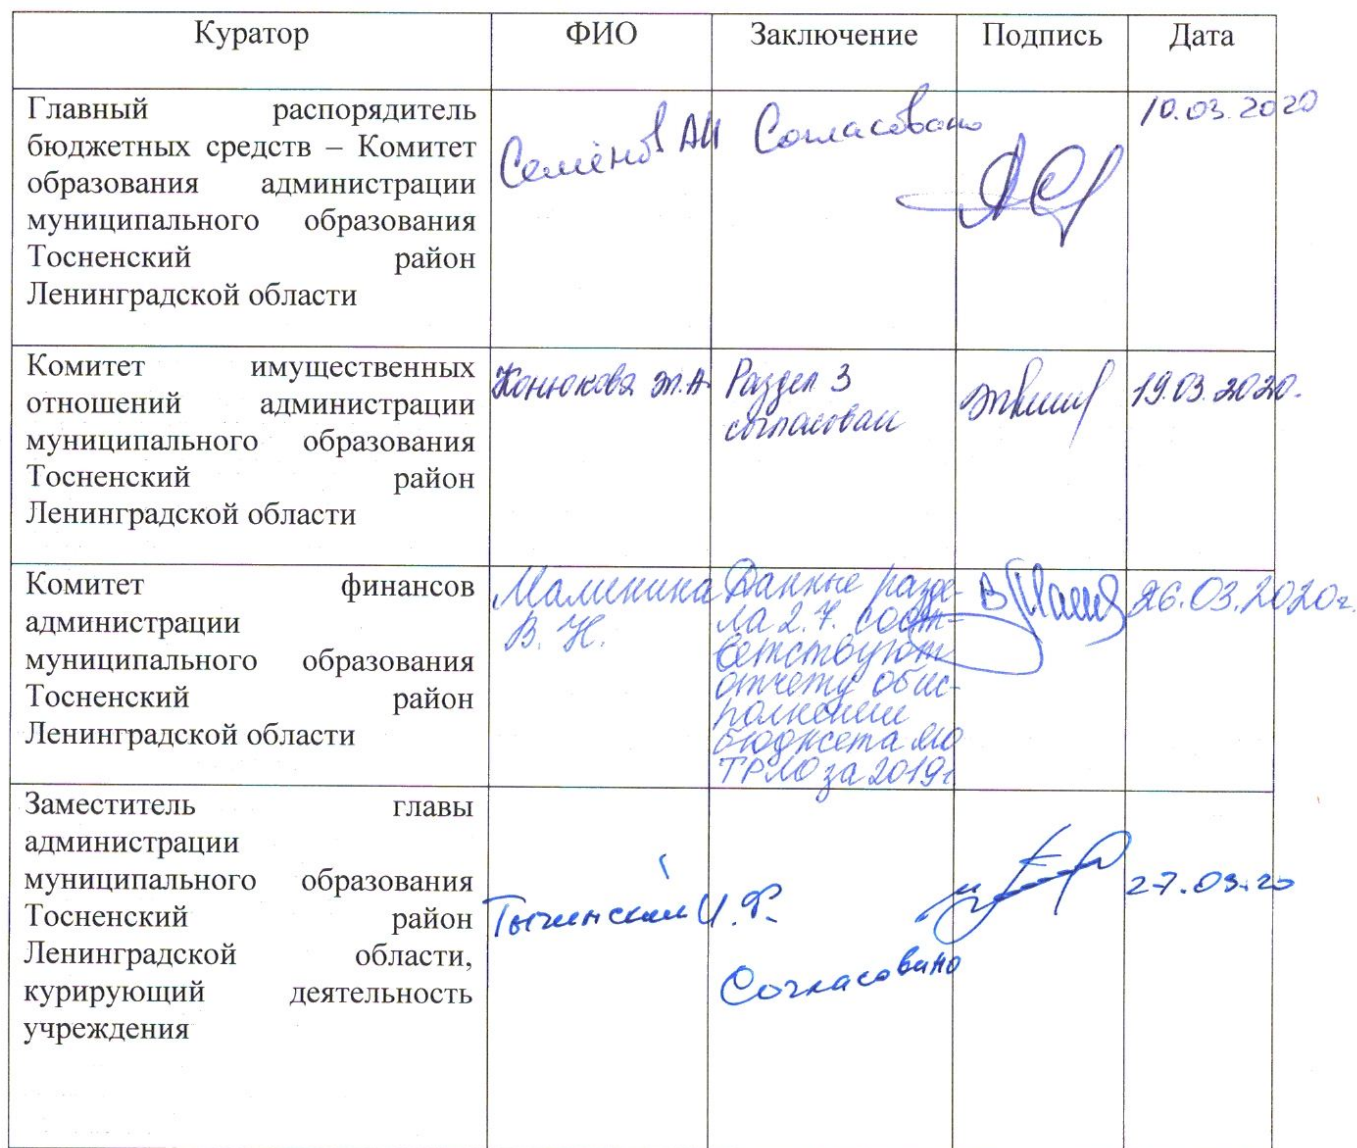 Куратор ФИО Заключение Подпись Дата
Главный распорядитель
бюджетных средств – Комитет
образования администрации
муниципального образования
Тосненский район
Ленинградской области
Семёнов АИ
Согласовано
10.03.2020
Комитет имущественных
отношений администрации
муниципального образования
Тосненский район
Ленинградской области
Раздел 3
согласован
19.03.2020.
Комитет финансов
администрации
муниципального образования
Тосненский район
Ленинградской области
Малинина
В. Н.
Данные разде-
ла 2.7. соот-
ветствуют
отчету об ис-
полнении
бюджета МО
ТРЛО за 2019г
26.03.2020г.
Заместитель главы
администрации
муниципального образования
Тосненский район
Ленинградской области,
курирующий деятельность
учреждения
Тычинский И.Ф.
Согласовано
27.03.20